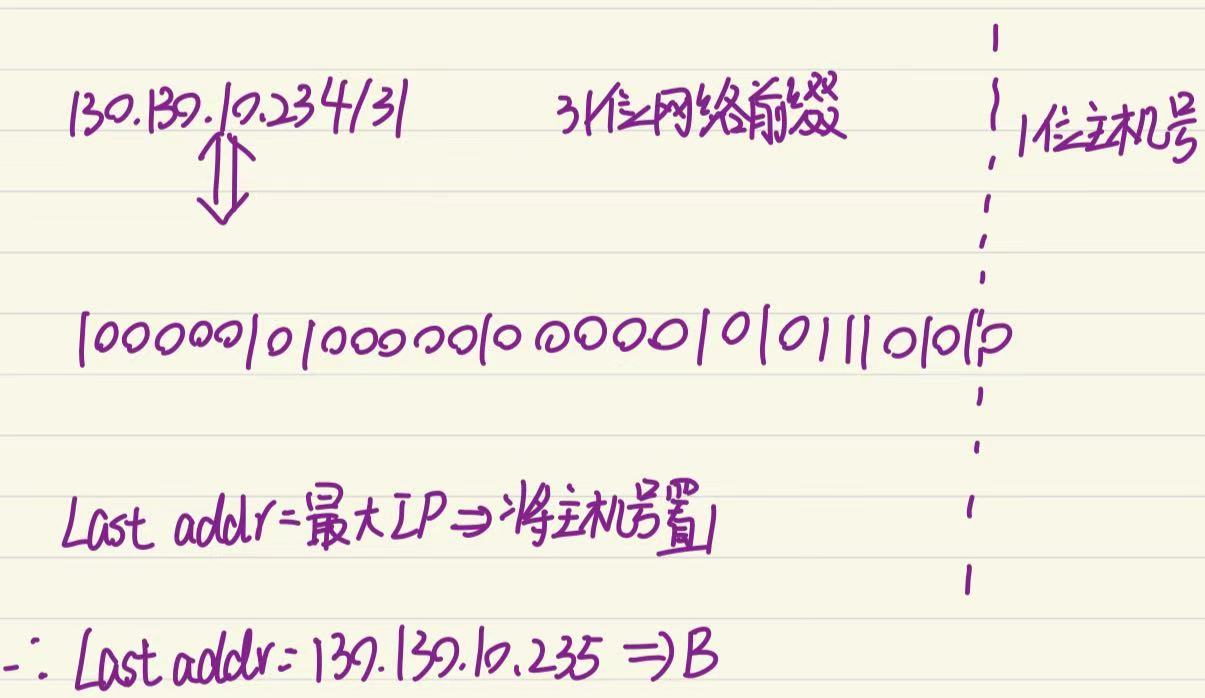 130.130.10.234/31 31位网络前缀 1位主机号
10000010100000100000101011101010
Last addr=最大IP⇒将主机号置1
∴ Last addr=130.130.10.235 ⇒B